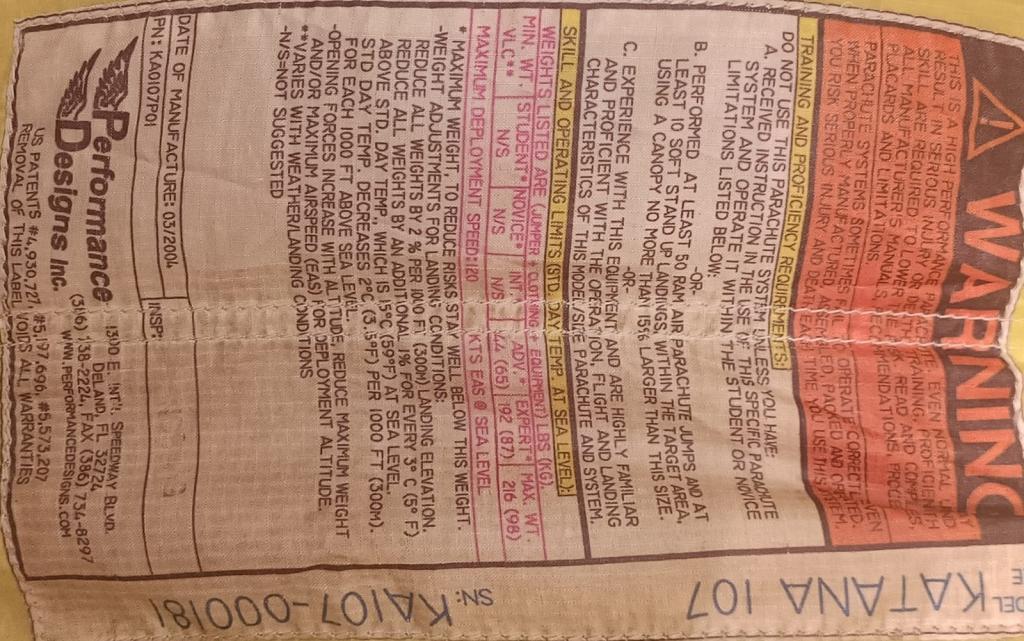 WARNING
THIS IS A HIGH PERFORMANCE
RESULT IN SERIOUS INJURY OR EVEN NORMAL
SKILL ARE REQUIRED TO LOWER TRAINING, PROFICIENT
ALL MANUFACTURER'S MANUALS, READ AND COMPLETE
PLACARDS AND LIMITATIONS.
PARACHUTE SYSTEMS SOMETIMES OPERATE CORRECTLY EVEN
WHEN PROPERLY MANUFACTURED, PACKED AND
YOU RISK SERIOUS INJURY AND DEATH EACH TIME YOU USE THIS
TRAINING AND PROFICIENCY REQUIREMENTS:
DO NOT USE THIS PARACHUTE SYSTEM UNLESS YOU HAVE:
A. RECEIVED INSTRUCTION IN THE USE OF THIS SPECIFIC PARACHUTE
SYSTEM AND OPERATE IT WITHIN THE STUDENT OR NOVICE
LIMITATIONS LISTED BELOW:
-OR-
B. PERFORMED AT LEAST 50 RAM AIR PARACHUTE JUMPS AND AT
LEAST 10 SOFT STAND UP LANDINGS, WITHIN THE TARGET AREA,
USING A CANOPY NO MORE THAN 15% LARGER THAN THIS SIZE.
-OR-
C. EXPERIENCE WITH THIS EQUIPMENT AND ARE HIGHLY FAMILIAR
AND PROFICIENT WITH THE OPERATION, FLIGHT AND LANDING
CHARACTERISTICS OF THIS MODEL/SIZE PARACHUTE AND SYSTEM.
SKILL AND OPERATING LIMITS (STD. DAY TEMP. AT SEA LEVEL):
WEIGHTS LISTED ARE (JUMPER + CLOTHING + EQUIPMENT) LBS (KG).
MIN. WT. STUDENT* NOVICE* INT.* ADV.* EXPERT* MAX. WT.
VLC** N/S N/S N/S 144 (65) 192 (87) 216 (98)
MAXIMUM DEPLOYMENT SPEED: 120 KTS EAS @ SEA LEVEL
* MAXIMUM WEIGHT, TO REDUCE RISKS STAY WELL BELOW THIS WEIGHT.
-WEIGHT ADJUSTMENTS FOR LANDING CONDITIONS:
REDUCE ALL WEIGHTS BY 2 % PER 1000 FT (300M) LANDING ELEVATION.
REDUCE ALL WEIGHTS BY AN ADDITIONAL 1% FOR EVERY 3° C (5° F)
ABOVE STD. DAY TEMP., WHICH IS 15°C (59°F) AT SEA LEVEL.
STD DAY TEMP. DECREASES 2°C (3.5°F) PER 1000 FT (300M).
FOR EACH 1000 FT ABOVE SEA LEVEL.
-OPENING FORCES INCREASE WITH ALTITUDE, REDUCE MAXIMUM WEIGHT
AND/OR MAXIMUM AIRSPEED (EAS) FOR DEPLOYMENT ALTITUDE.
**VARIES WITH WEATHER/LANDING CONDITIONS
-N/S=NOT SUGGESTED
DATE OF MANUFACTURE: 03/2004
INSP:
PN: KA0107P01
Performance
Designs Inc.
1300 E. INT'L SPEEDWAY BLVD.
DELAND, FL 32724
(386) 738-2224, FAX (386) 734-8297
WWW.PERFORMANCEDESIGNS.COM
US PATENTS #4,930,727, #5,197,696, #5,573,207
REMOVAL OF THIS LABEL VOIDS ALL WARRANTIES
KATANA 107
SN: KA107-000181